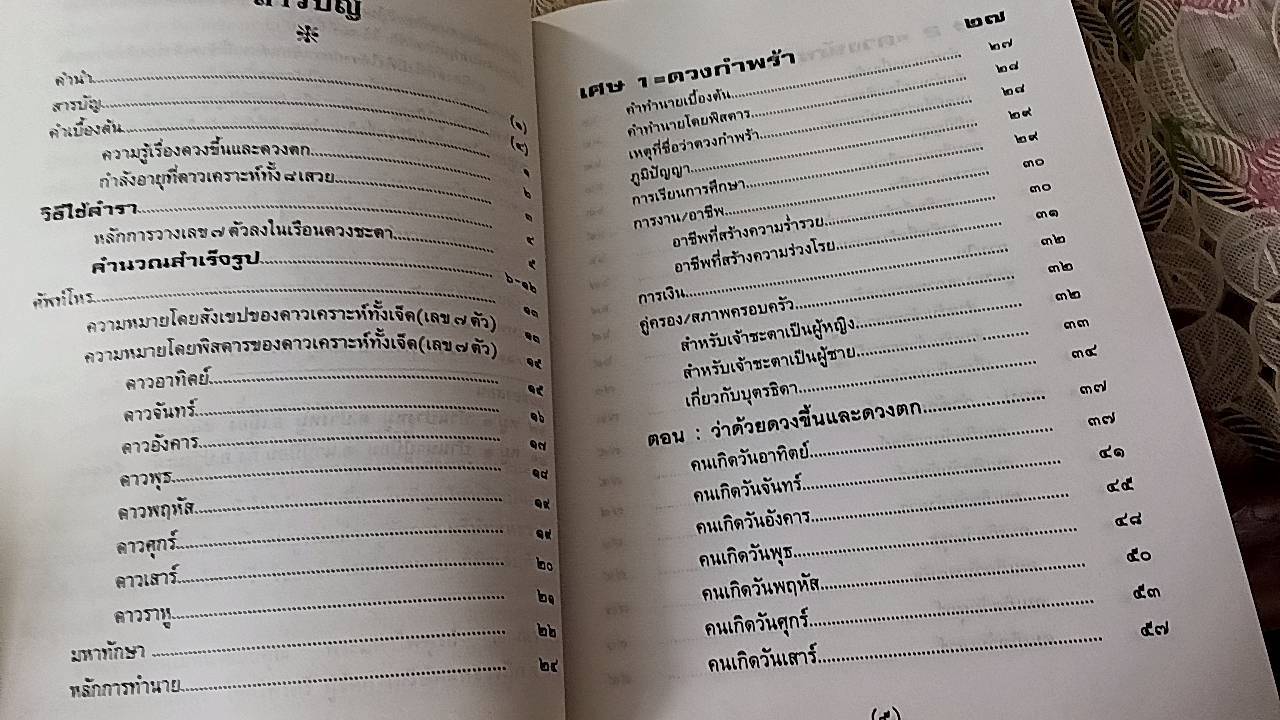 สารบัญ
คำนำ
สารบัญ (๑)
คำเบื้องต้น (๙)
ความรู้เรื่องดวงขึ้นและดวงตก ๑
กำลังอายุที่ดาวเคราะห์ทั้ง ๘ เสวย ๒
วิธีใช้ตำรา ๓
หลักการวางเลข ๗ ตัวลงในเรือนดวงชะตา ๔
คำนวณสำเร็จรูป ๕
ศัพท์โหร ๖-๑๒
ความหมายโดยสังเขปของดาวเคราะห์ทั้งเจ็ด(เลข ๗ ตัว) ๑๓
ความหมายโดยพิสดารของดาวเคราะห์ทั้งเจ็ด(เลข ๗ ตัว) ๑๓
ดาวอาทิตย์ ๑๕
ดาวจันทร์ ๑๕
ดาวอังคาร ๑๖
ดาวพุธ ๑๗
ดาวพฤหัส ๑๘
ดาวศุกร์ ๑๙
ดาวเสาร์ ๑๙
ดาวราหู ๒๐
มหาทักษา ๒๑
หลักการทำนาย ๒๒
๒๔
เศษ ๑=ดวงกำพร้า ๒๗
คำทำนายเบื้องต้น ๒๗
คำทำนายโดยพิสดาร ๒๘
เหตุที่ชื่อว่าดวงกำพร้า ๒๘
ภูมิปัญญา ๒๙
การเรียนการศึกษา ๒๙
การงาน/อาชีพ ๓๐
อาชีพที่สร้างความร่ำรวย ๓๐
อาชีพที่สร้างความร่วงโรย ๓๑
การเงิน ๓๒
คู่ครอง/สภาพครอบครัว ๓๒
สำหรับเจ้าชะตาเป็นผู้หญิง ๓๒
สำหรับเจ้าชะตาเป็นผู้ชาย ๓๓
เกี่ยวกับบุตรธิดา ๓๔
ตอน : ว่าด้วยดวงขึ้นและดวงตก ๓๗
คนเกิดวันอาทิตย์ ๓๗
คนเกิดวันจันทร์ ๔๑
คนเกิดวันอังคาร ๔๕
คนเกิดวันพุธ ๔๘
คนเกิดวันพฤหัส ๕๐
คนเกิดวันศุกร์ ๕๓
คนเกิดวันเสาร์ ๕๗